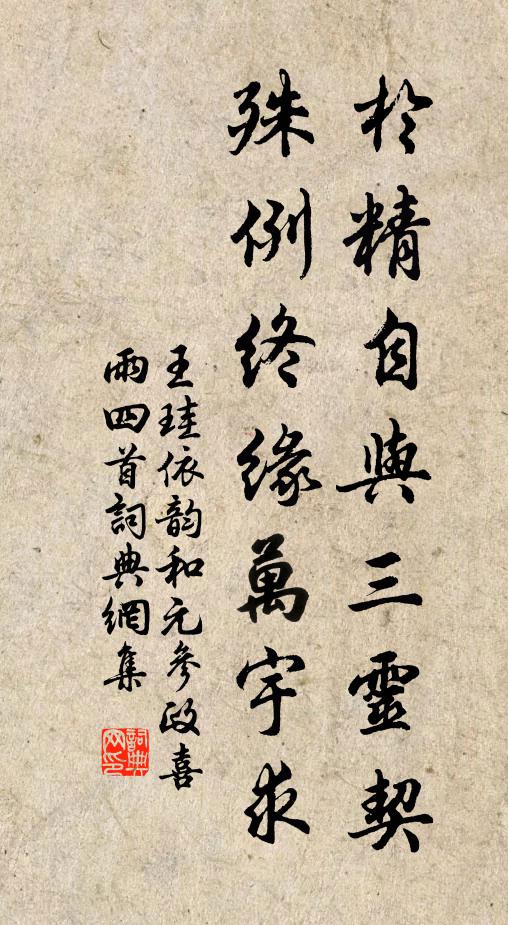 於精自與三靈契
殊例終緣萬宇求
王珪依韵和元參政喜
雨四首詞典網集
詞典網印